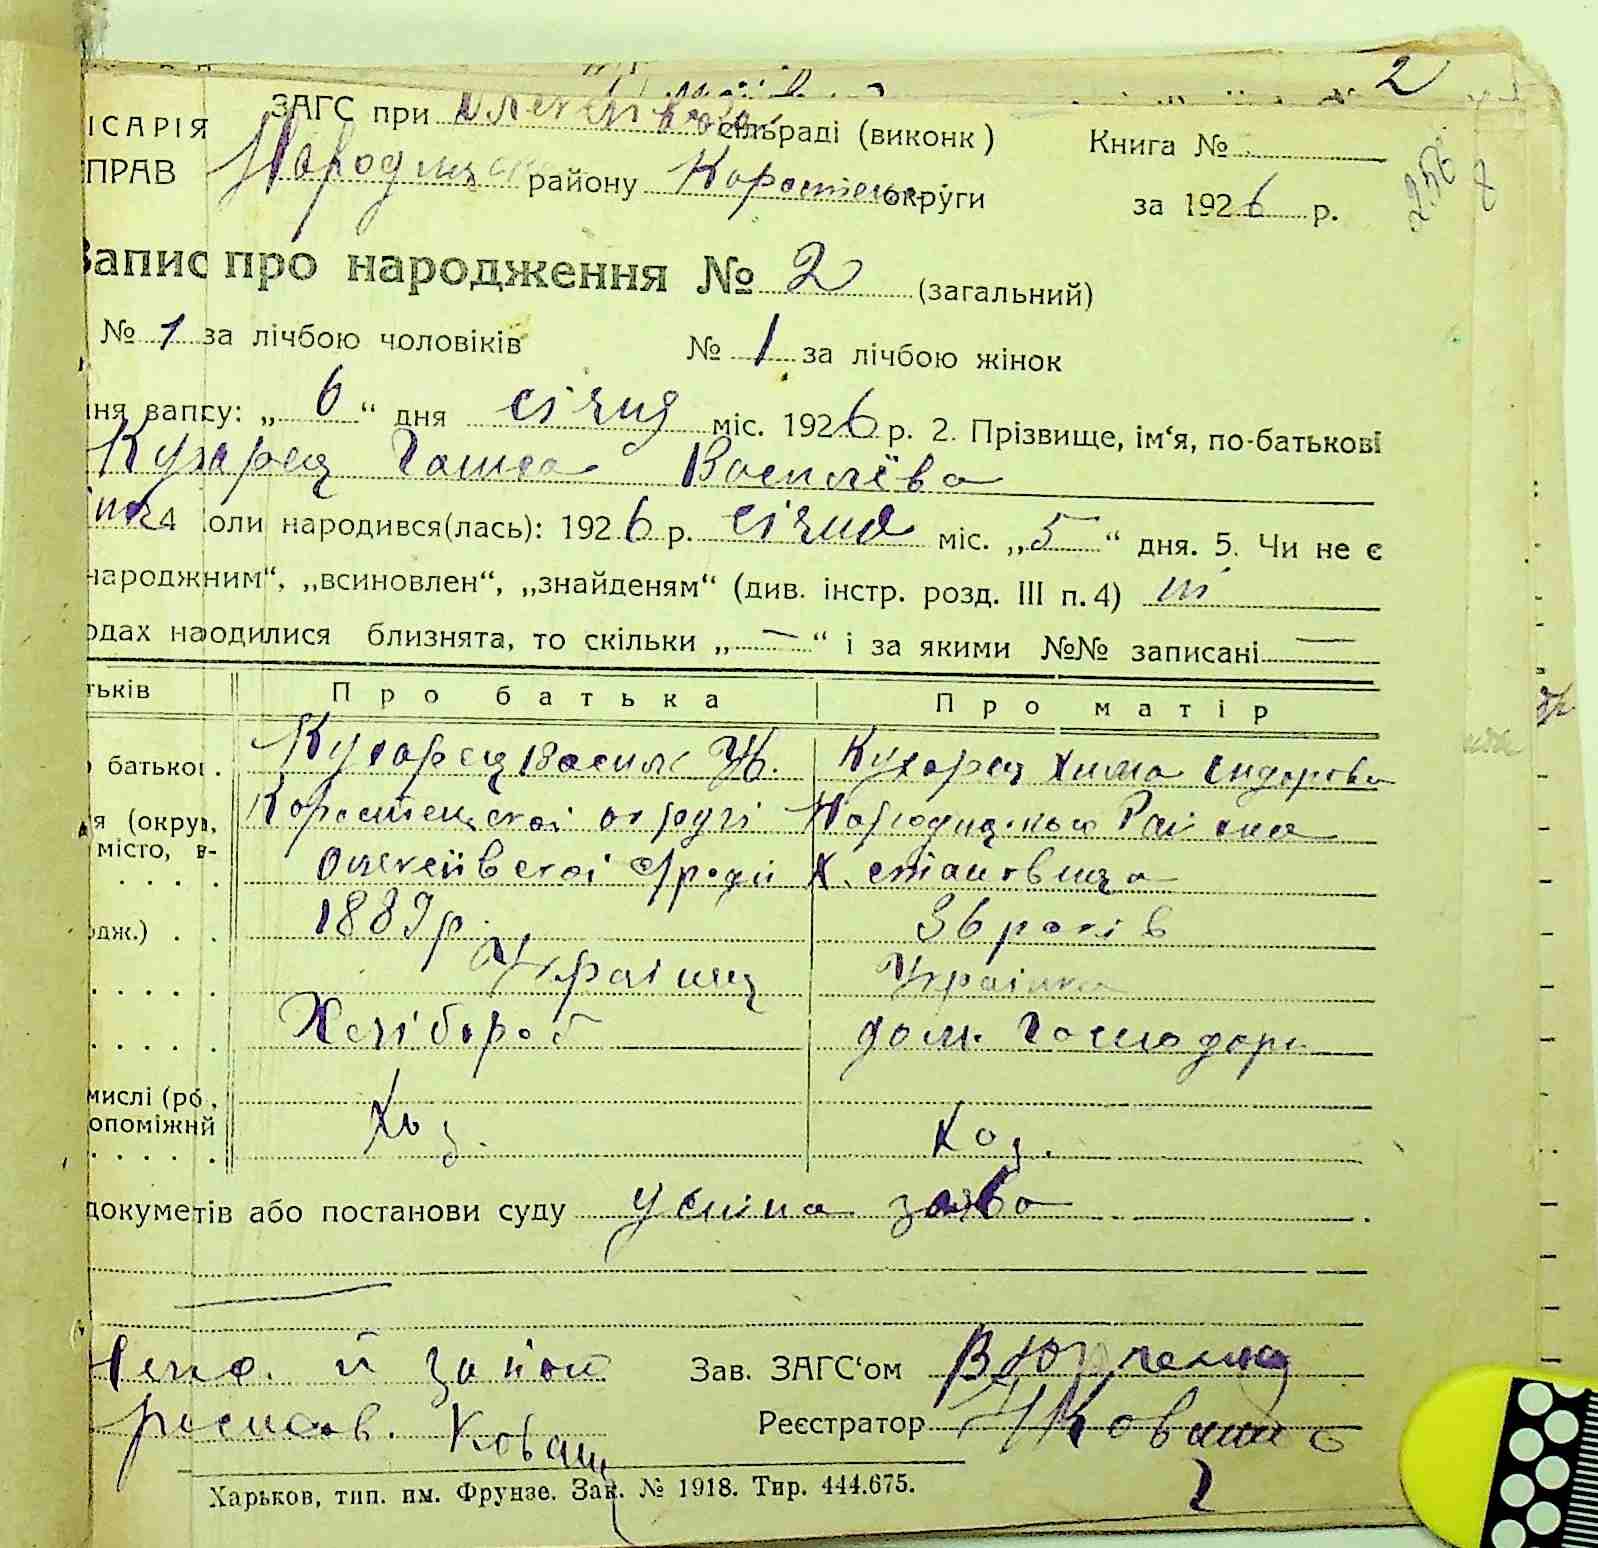 2
ІСАРІЯ ЗАГС при сільраді (виконк) Книга №
ПРАВ району Коростен. округи за 1926 р.
256
8
Запис про народження № 2 (загальний)
№ 1 за лічбою чоловіків № 1 за лічбою жінок
ня запсу: „6“ дня січня міс. 1926 р. 2. Прізвище, ім‘я, по-батькові
Кухарец Ганна Василёва
4 оли народився(лась): 1926 р. січня міс. „5“ дня. 5. Чи не є
народжним“, „всиновлен“, „знайденям“ (див. інстр. розд. III п. 4) ні
одах наодилися близнята, то скільки „—“ і за якими №№ записані —
тьків Про батька Про матір
батькоі. Кухарец Васил Кухарец Хима Сидорова
я (окруі, Коростенської округі Народицького Района
місто, в-
1889 р. 36 років
одж.)
Украінец Украінка
Хлібороб дом. Господар
мислі (ро,
опоміжнй Хоз. Хоз.
докуметів або постанови суду усна заява
Зав. ЗАГС‘ом
Реєстратор
Харьков, тип. им. Фрунзе. Зак. № 1918. Тир. 444.675.
2